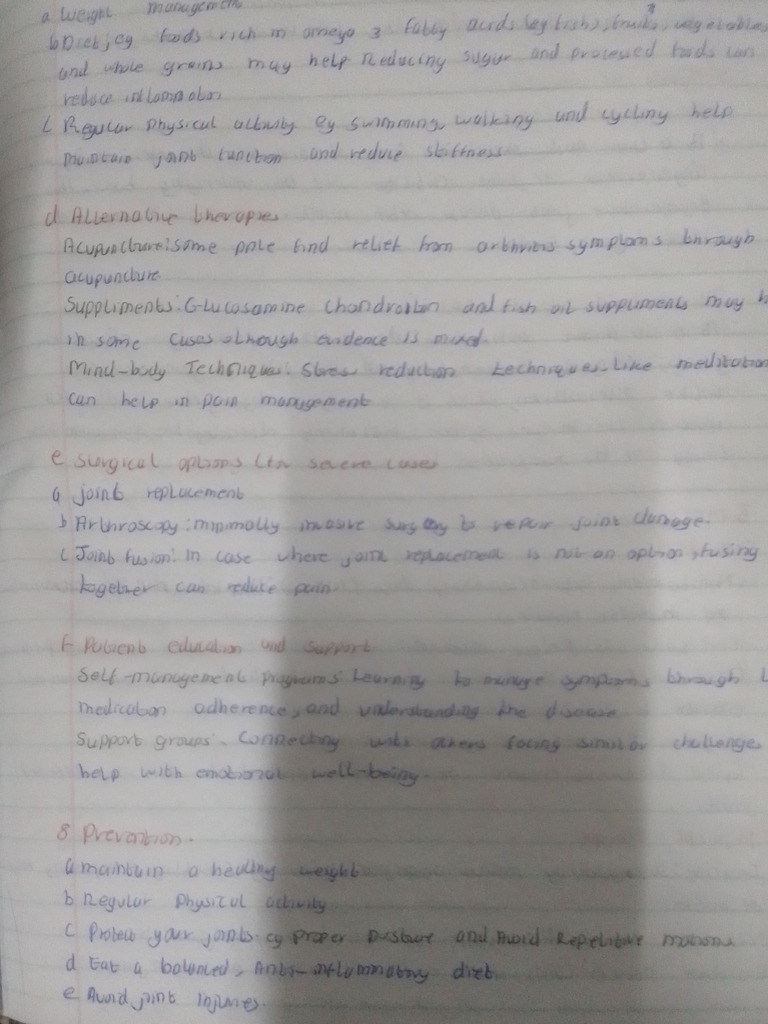 a Weight management
b Diet, eg foods rich in omega 3 fatty acids (eg fish), fruits, vegetables
and whole grains may help Reducing sugar and processed foods can
reduce inflammation
c Regular physical activity eg swimming, walking and cycling help
maintain joint function and reduce stiffness
d Alternative therapies
Acupuncture: some find relief from arthritis symptoms through
acupuncture
Suppliments: Glucosamine chondroitin and fish oil suppliments may
in some cases although evidence is mixed.
Mind-body Techniques: Stress reduction techniques like meditation
can help in pain management
e Surgical options (for severe cases
a joint replacement
b Arthroscopy: minimally invasive surgery to repair joint damage.
c Joint fusion: In case where joint replacement is not an option, fusing
together can reduce pain.
f Patient education and support
Self-management programs Learning to manage symptoms through
medication adherence, and understanding the disease
Support groups. Connecting with others facing similar challenge
help with emotional well-being.
8 Prevention.
a maintain a healthy weight
b Regular physical activity
c Protect your joints eg proper posture and Avoid Repetitive motions
d Eat a balanced, Anti-inflammatory diet.
e Avoid joint injuries.